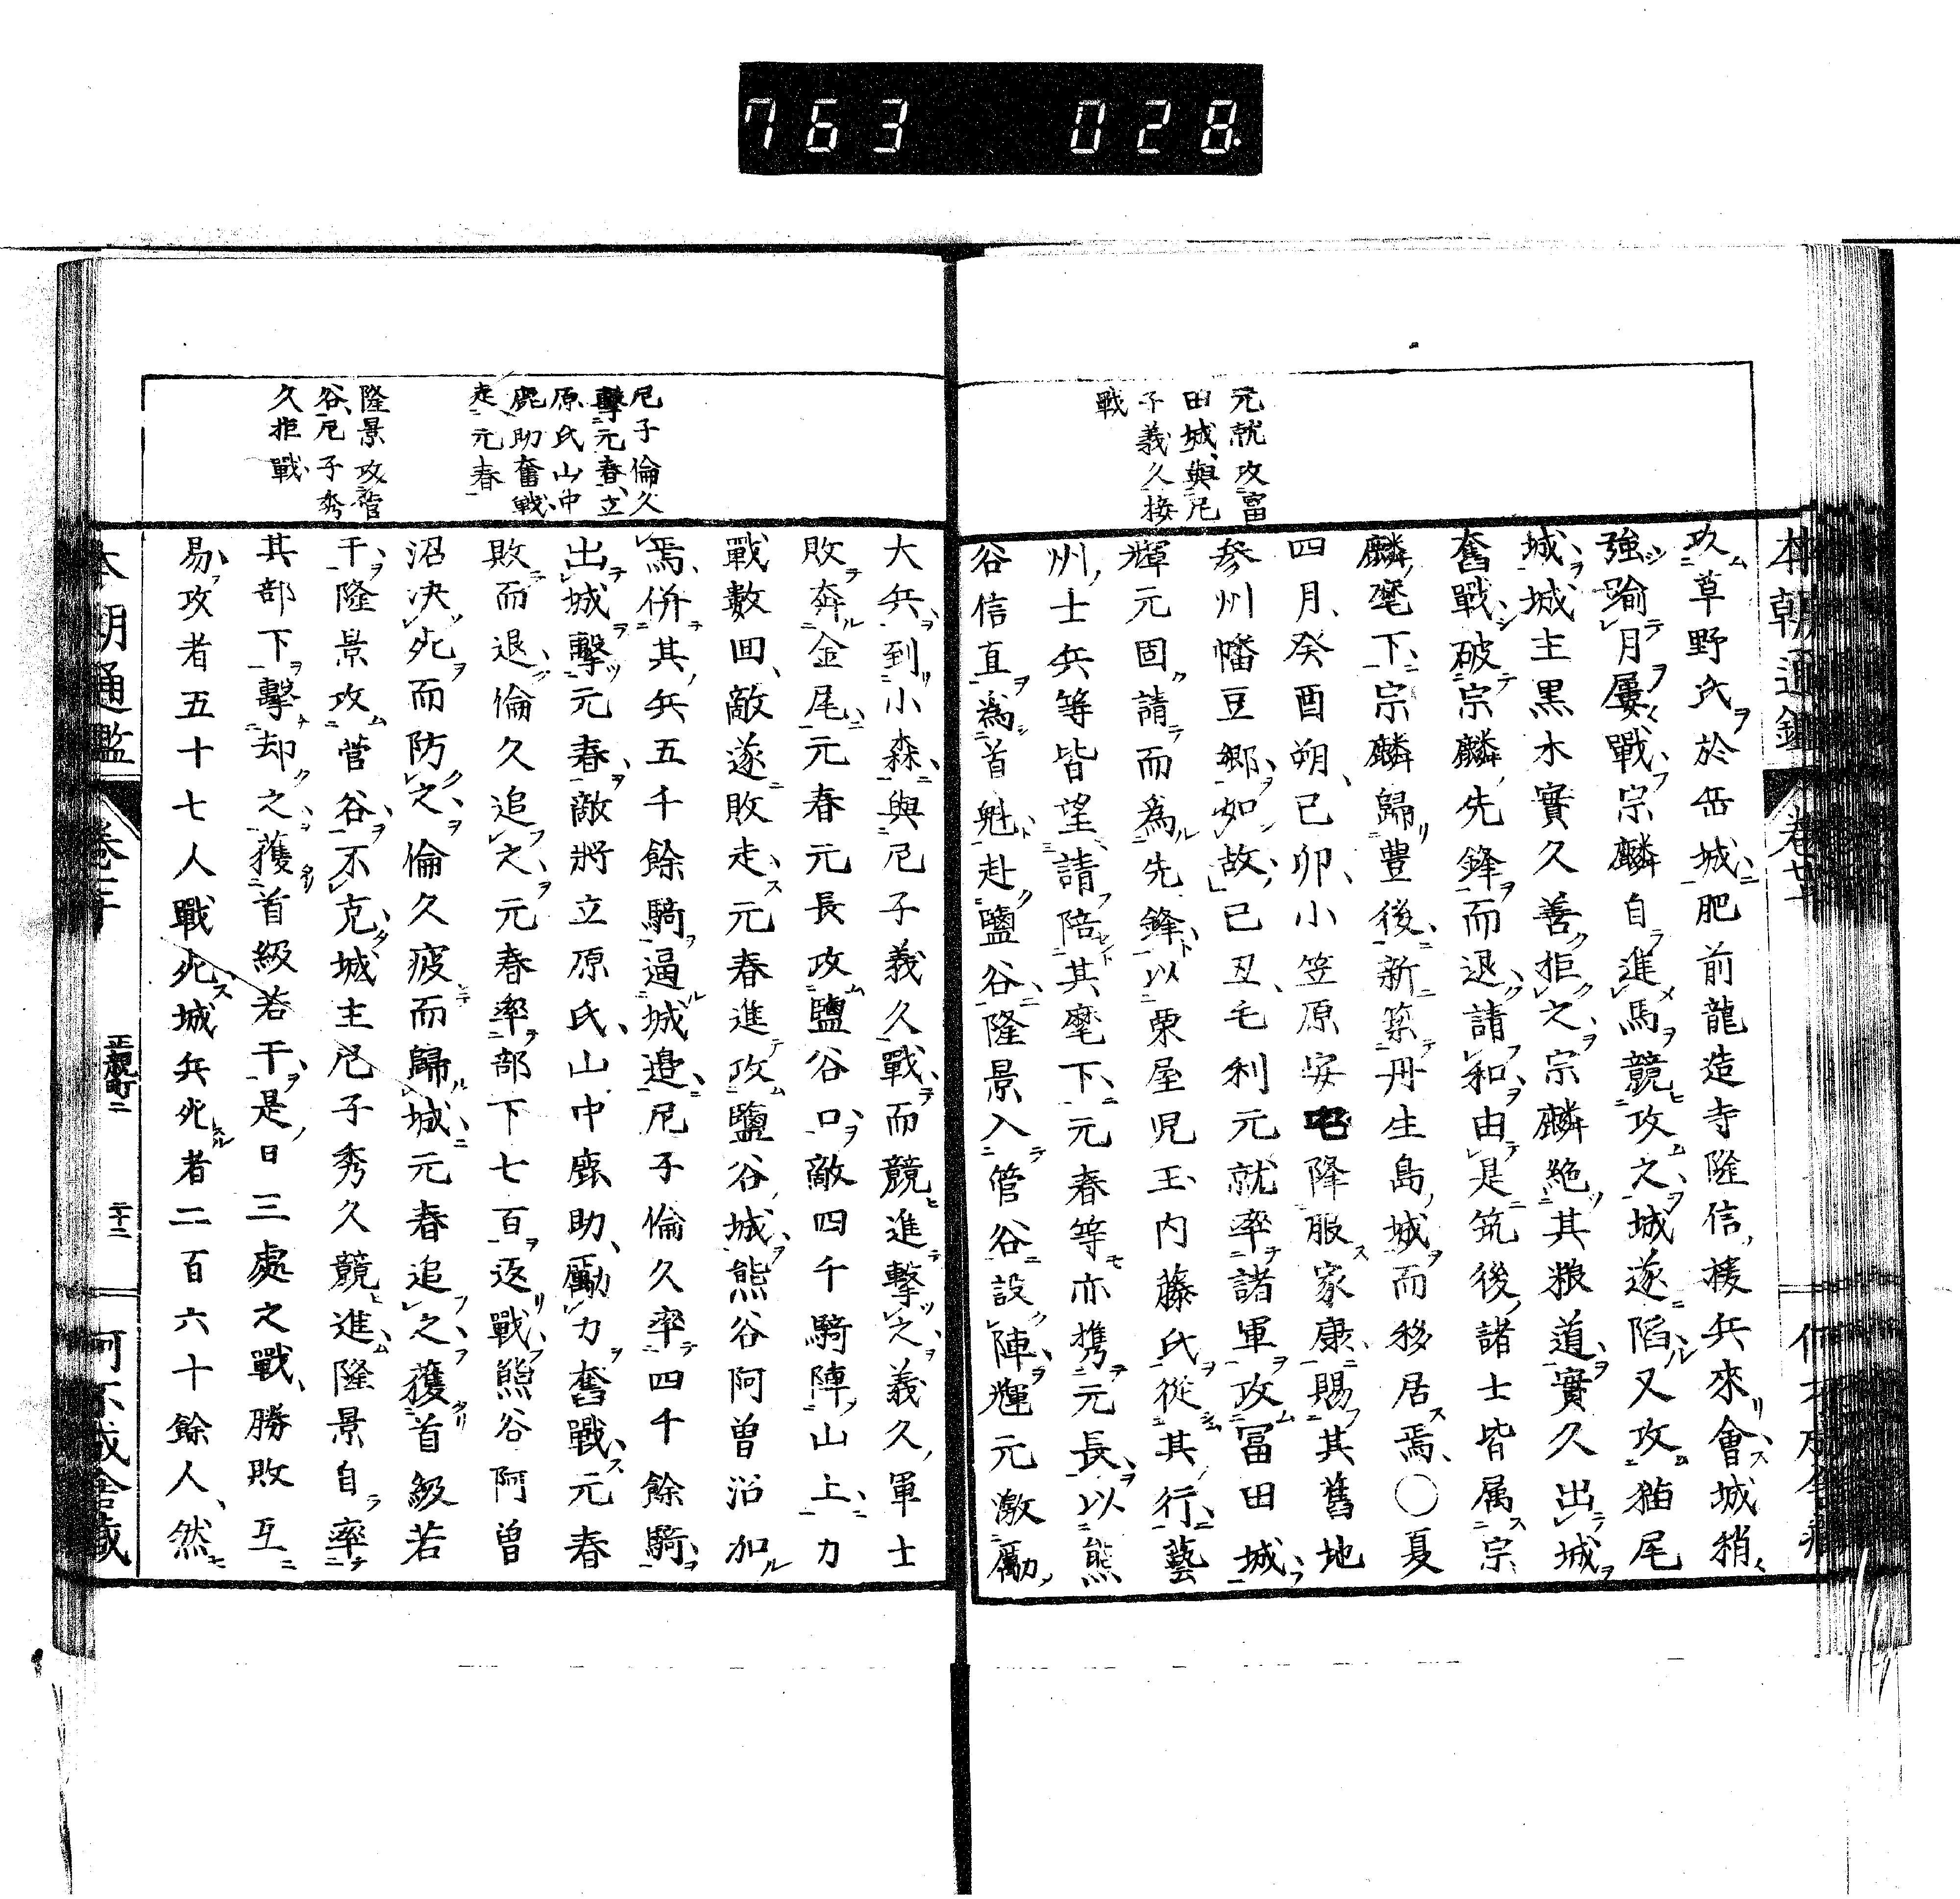 763 028.
本朝通鑑 卷
元就攻富
田城與尼
子義久接
戰
攻草野氏於缶城肥前龍造寺隆信援兵來會城稍
強踰月屢戰宗麟自進馬競攻之城遂陷又攻猫尾
城城主黒木實久善拒之宗麟絶其粮道實久出城
奮戰破宗麟先鋒而退請和由是筑後諸士皆属宗
麟麾下宗麟歸豊後新築丹生島城而移居焉〇夏
四月癸酉朔己卯小笠原安 降服家康賜其舊地
參州幡豆郷如故己丑毛利元就率諸軍攻冨田城
輝元固請而為先鋒以栗屋児玉内藤氏從其行藝
州士兵等皆望請陪其麾下元春等亦携元長以熊
谷信直為首魁赴鹽谷隆景入管谷設陣輝元激勵
尼子倫久
擊元春立
原氏山中
鹿助奮戰
走元春
隆景攻菅
谷尼子秀
久拒戰
大兵到小森與尼子義久戰而競進擊之義久軍士
敗奔金尾元春元長攻鹽谷口敵四千騎陣山上力
戰數回敵遂敗走元春進攻鹽谷城熊谷阿曽沼加
焉併其兵五千餘騎逼城邉尼子倫久率四千餘騎
出城擊元春敵將立原氏山中鹿助勵力奮戰元春
敗而退倫久追之元春率部下七百返戰熊谷阿曽
沼决死而防之倫久疲而歸城元春追之獲首級若
干隆景攻菅谷不克城主尼子秀久競進隆景自率
其部下擊却之獲首級若干是日三處之戰勝敗互
易攻者五十七人戰死城兵死者二百六十餘人然
本朝通鑑
正親町二
二十二